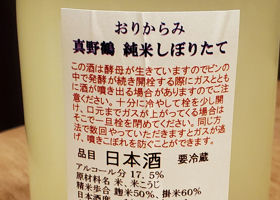 おりからみ
真野鶴 純米しぼりたて
この酒は酵母が生きていますのでビンの
中で発酵が続き開栓する際にガスととも
に酒が噴き出る場合がありますのでご注
意ください。十分に冷やして栓を少し開
け、口元までガスが上がってくる場合は
そこで一旦栓を閉めてください。同じ方
法で数回やっていただきますとガスが逃
げ、噴きこぼれを防ぐことができます。
品目 日本酒 要冷蔵
アルコール分 17.5%
原材料名 米、米こうじ
精米歩合 麹米50%、掛米60%
日本酒度